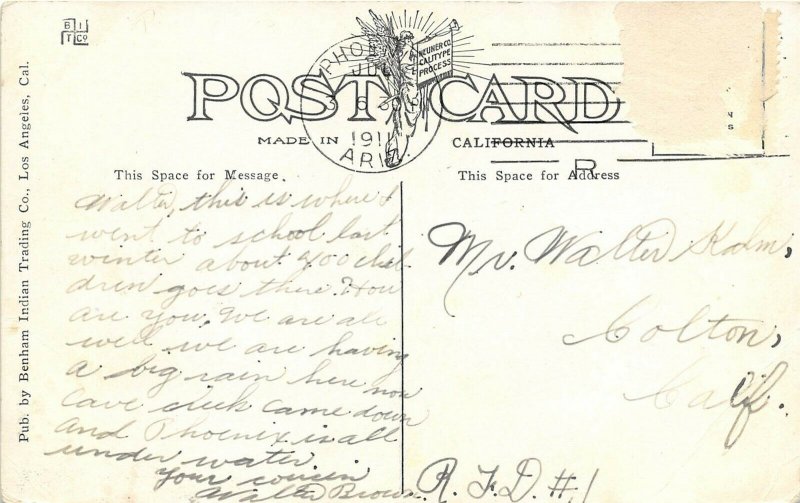 B I
T Co
NEUNER CO.
CALITYPE
PROCESS
PHOENIX
JUL
3
6 30 P
1911
ARIZ.
POST CARD
MADE IN CALIFORNIA
This Space for Message
This Space for Address
Pub. by Benham Indian Trading Co., Los Angeles, Cal.
Walter, this is where I
went to school last
winter about 400 chil-
dren goes there. How
are you. We are all
well we are having
a big rain here now
Cave creek came down
and Phoenix is all
under water
your cousin
Walter Brown
Mr. Walter Kalm,
Colton,
Calif.
R. F. D. #1